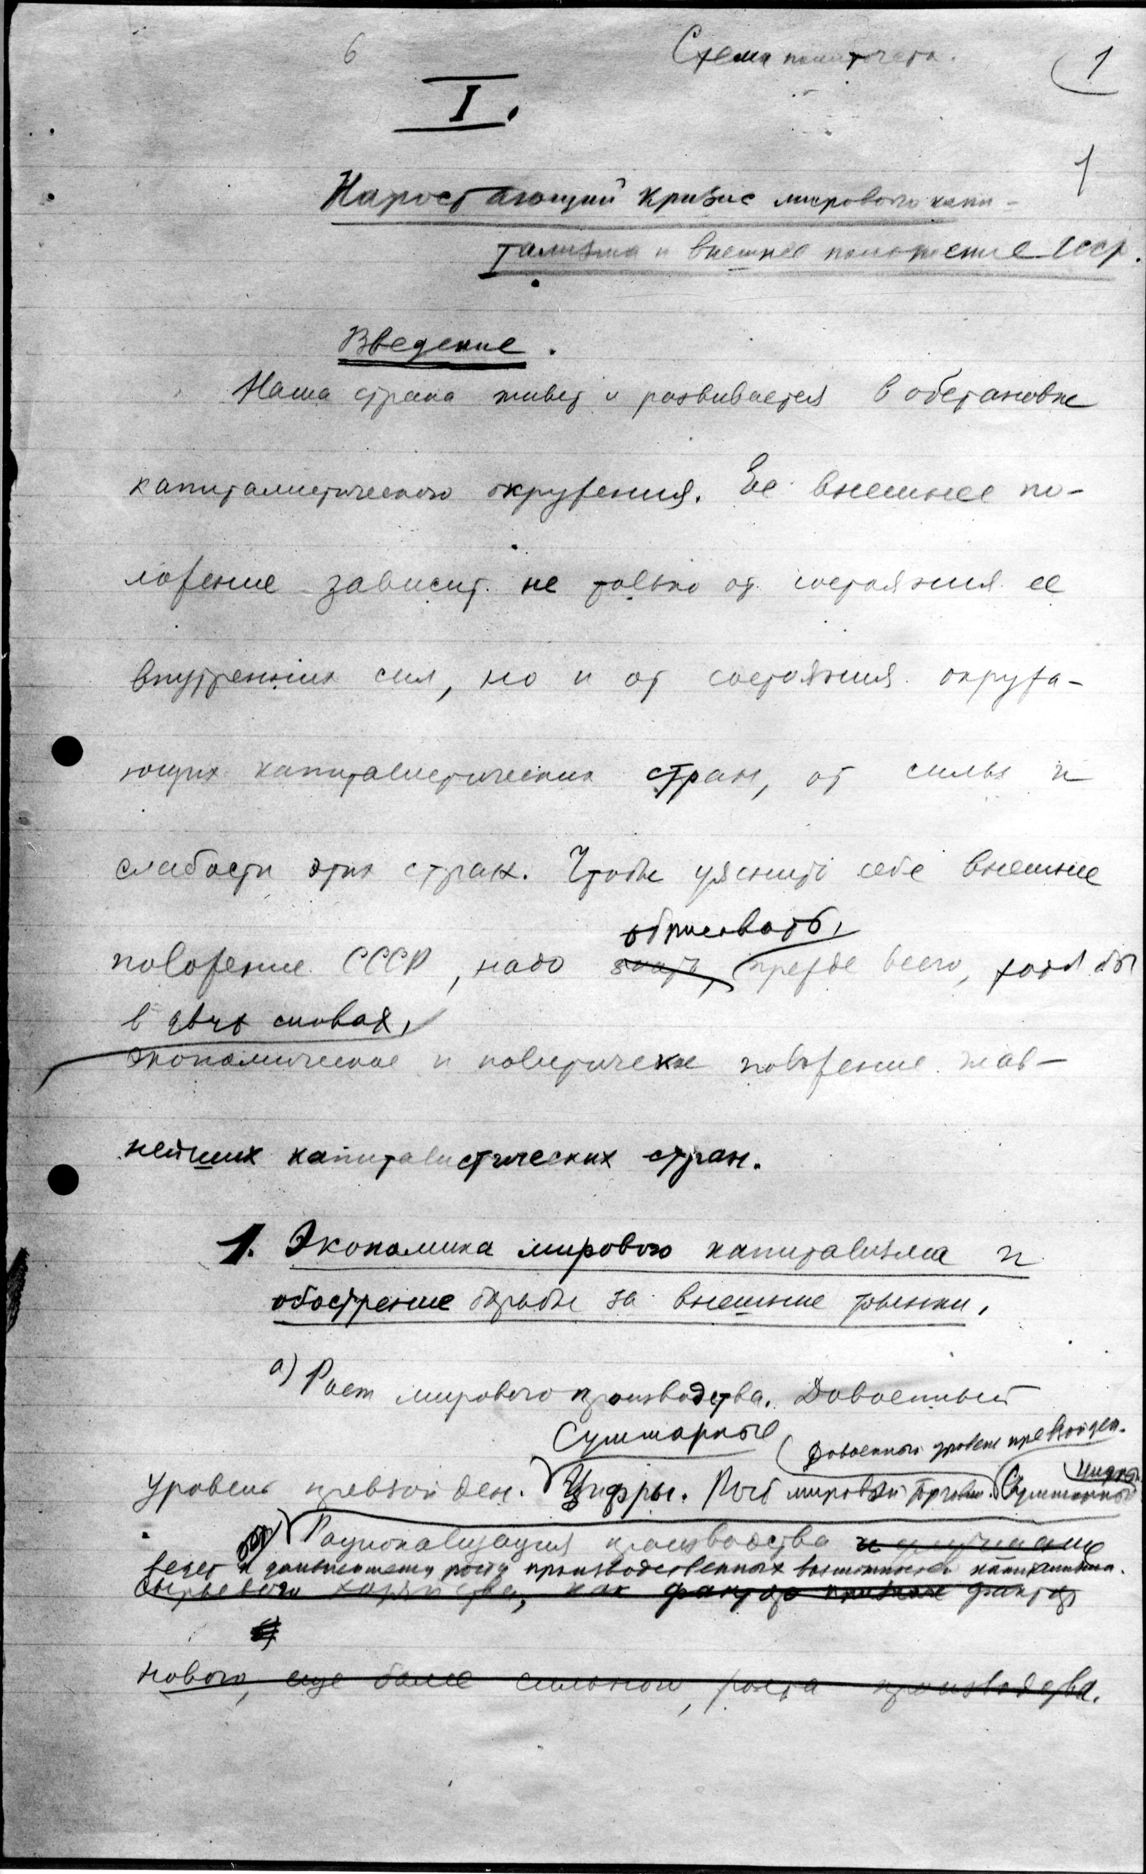 6
Схема политотчета.
1
I.
1
Нарастающий кризис мирового капи-
тализма и внешнее положение СССР.
Введение.
Наша страна живет и развивается в обстановке
капиталистического окружения. Ее внешнее по-
ложение зависит не только от состояния ее
внутренних сил, но и от состояния окружа-
ющих капиталистических стран, от силы и
слабости этих стран. Чтобы уяснить себе внешнее
обрисовать,
положение СССР, надо знать, прежде всего, хотя бы
в двух словах,
экономическое и политическое положение глав-
нейших капиталистических стран.
1. Экономика мирового капитализма и
обострение борьбы за внешние рынки.
а) Рост мирового производства. Довоенный
Суммарные
Довоенный уровень превзойден.
уровень превзойден. Цифры. Рост мировой торговли. Суммарные
цифры.
б) Рационализация производства и улучшение
ведет к дальнейшему росту производственных возможностей капитализма.
сырьевого хозяйства, как фактор
нового, еще более сильного, роста производства.